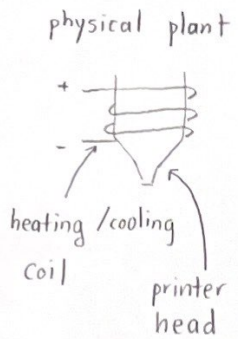 physical plant
+
-
heating / cooling
coil
printer
head